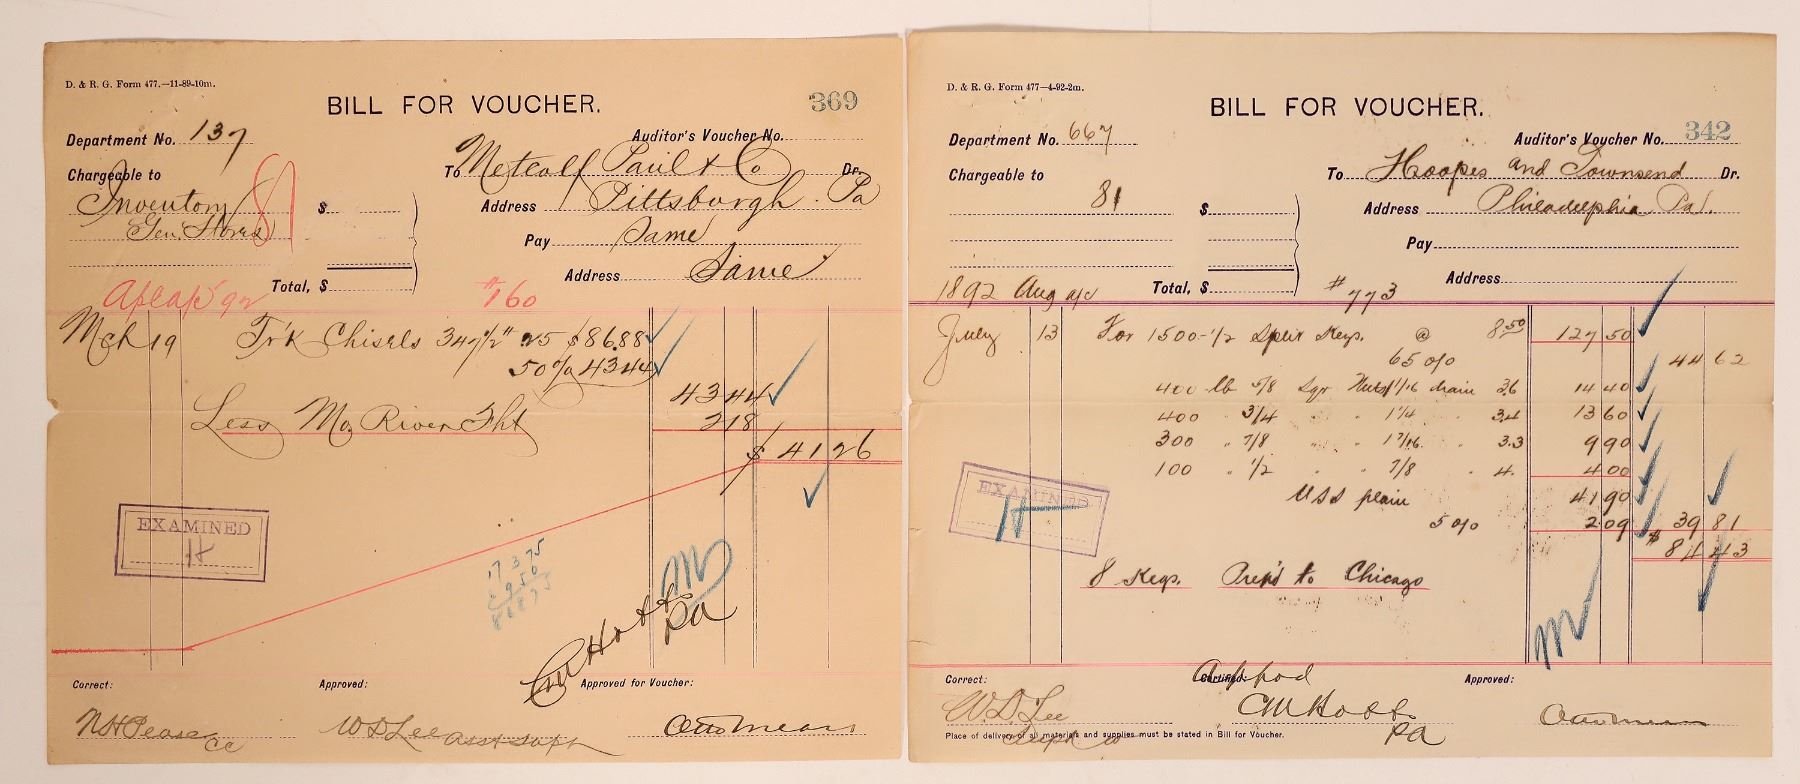 D. & R. G. Form 477.—11-89-10m.
BILL FOR VOUCHER.
369
Department No. 137
Auditor's Voucher No.
Chargeable to
To Metcalf Paul & Co Dr.
Inventory
81
$
Address Pittsburgh. Pa
Gen. Stores
Pay Same
Total, $
Address Same
'92
#160
Mch 19 Tr'k Chisels 347½# 25 $86.88
50% 43.44
43 44
Less Mo. River Fht
2 18
$ 41 26
EXAMINED
H
173 75
86875
M
CM Hobbs
PA
Correct:
Approved:
Approved for Voucher:
N H Pease
CC
W D Lee Asst Supt
Otto Mears
D. & R. G. Form 477—4-92-2m.
BILL FOR VOUCHER.
342
Department No. 667
Auditor's Voucher No.
Chargeable to
To Hoopes and Townsend Dr.
81
$
Address Philadelphia Pa.
Pay
Address
1892 Aug a/c
Total, $
#773
July 13 For 1500-1/2 Split Keys. @ 8.50 127 50
65 o/o
44 62
400 lb 5/8 Sqr Nuts 1 1/16 3.6 14 40
400 " 3/4 " " 1 1/4 " 3.4 13 60
300 " 7/8 " " 1 7/16 " 3.3 9 90
100 " 1/2 " " 7/8 " 4. 4 00
USS plain
41 90
5 o/o
2 09
39 81
$ 84 43
EXAMINED
H
8 Kegs. Prep'd to Chicago
M
Correct:
Certified:
Approved:
App'vd
W. D. Lee
CM Hobbs
PA
Otto Mears
Place of delivery of all materials and supplies must be stated in Bill for Voucher.